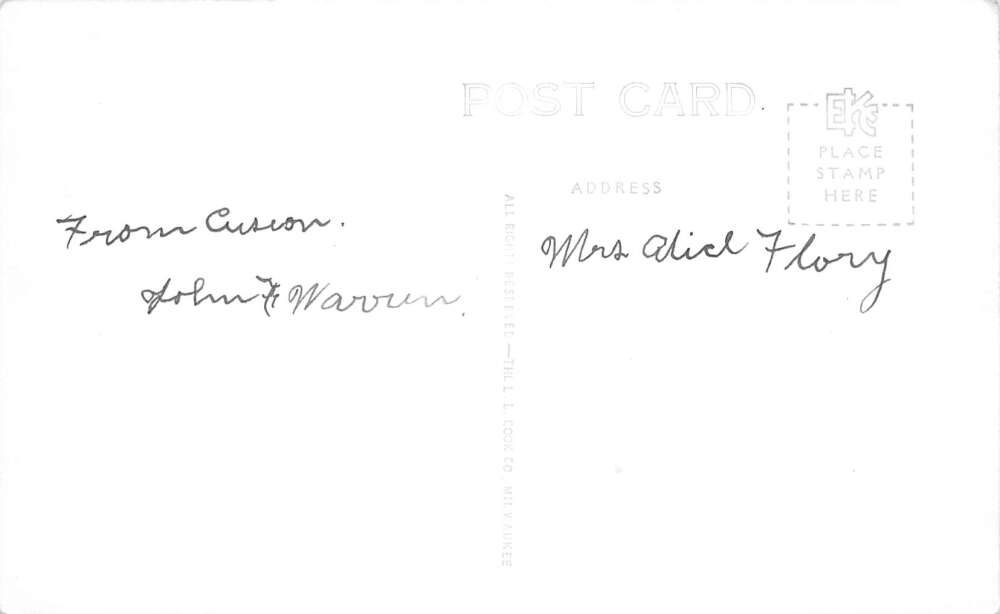 POST CARD
EKC
PLACE
STAMP
HERE
ADDRESS
From Cusion.
John F Warren.
Mrs Alice Flory
ALL RIGHTS RESERVED — THE L. L. COOK CO. MILWAUKEE